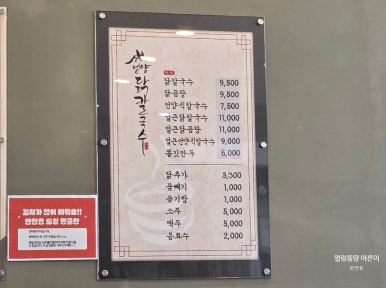 언양닭칼국수
메뉴
닭칼국수 9,500
닭곰탕 9,500
언양식칼국수 7,500
얼큰닭칼국수 11,000
얼큰닭곰탕 11,000
얼큰언양식칼국수 9,000
쫄깃만두 6,000
닭추가 3,500
곱빼기 1,000
공기밥 1,000
소주 5,000
맥주 5,000
음료수 2,000
김치가 많이 매워요!!
얼렁뚱땅 어른이